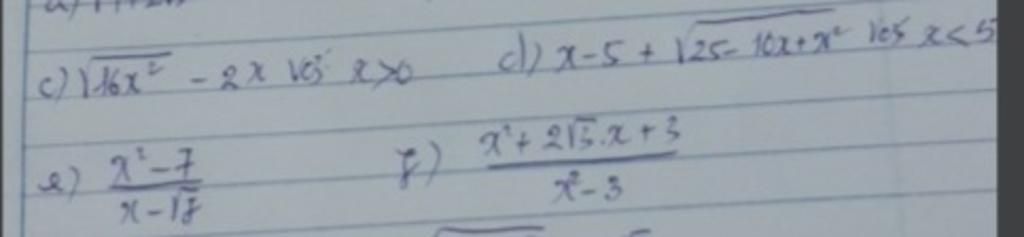 c) √16x² - 2x với x>0 d) x-5 + √25-10x+x² với x<5
e) x²-7 / x-√7 f) x²+2√3.x+3 / x²-3